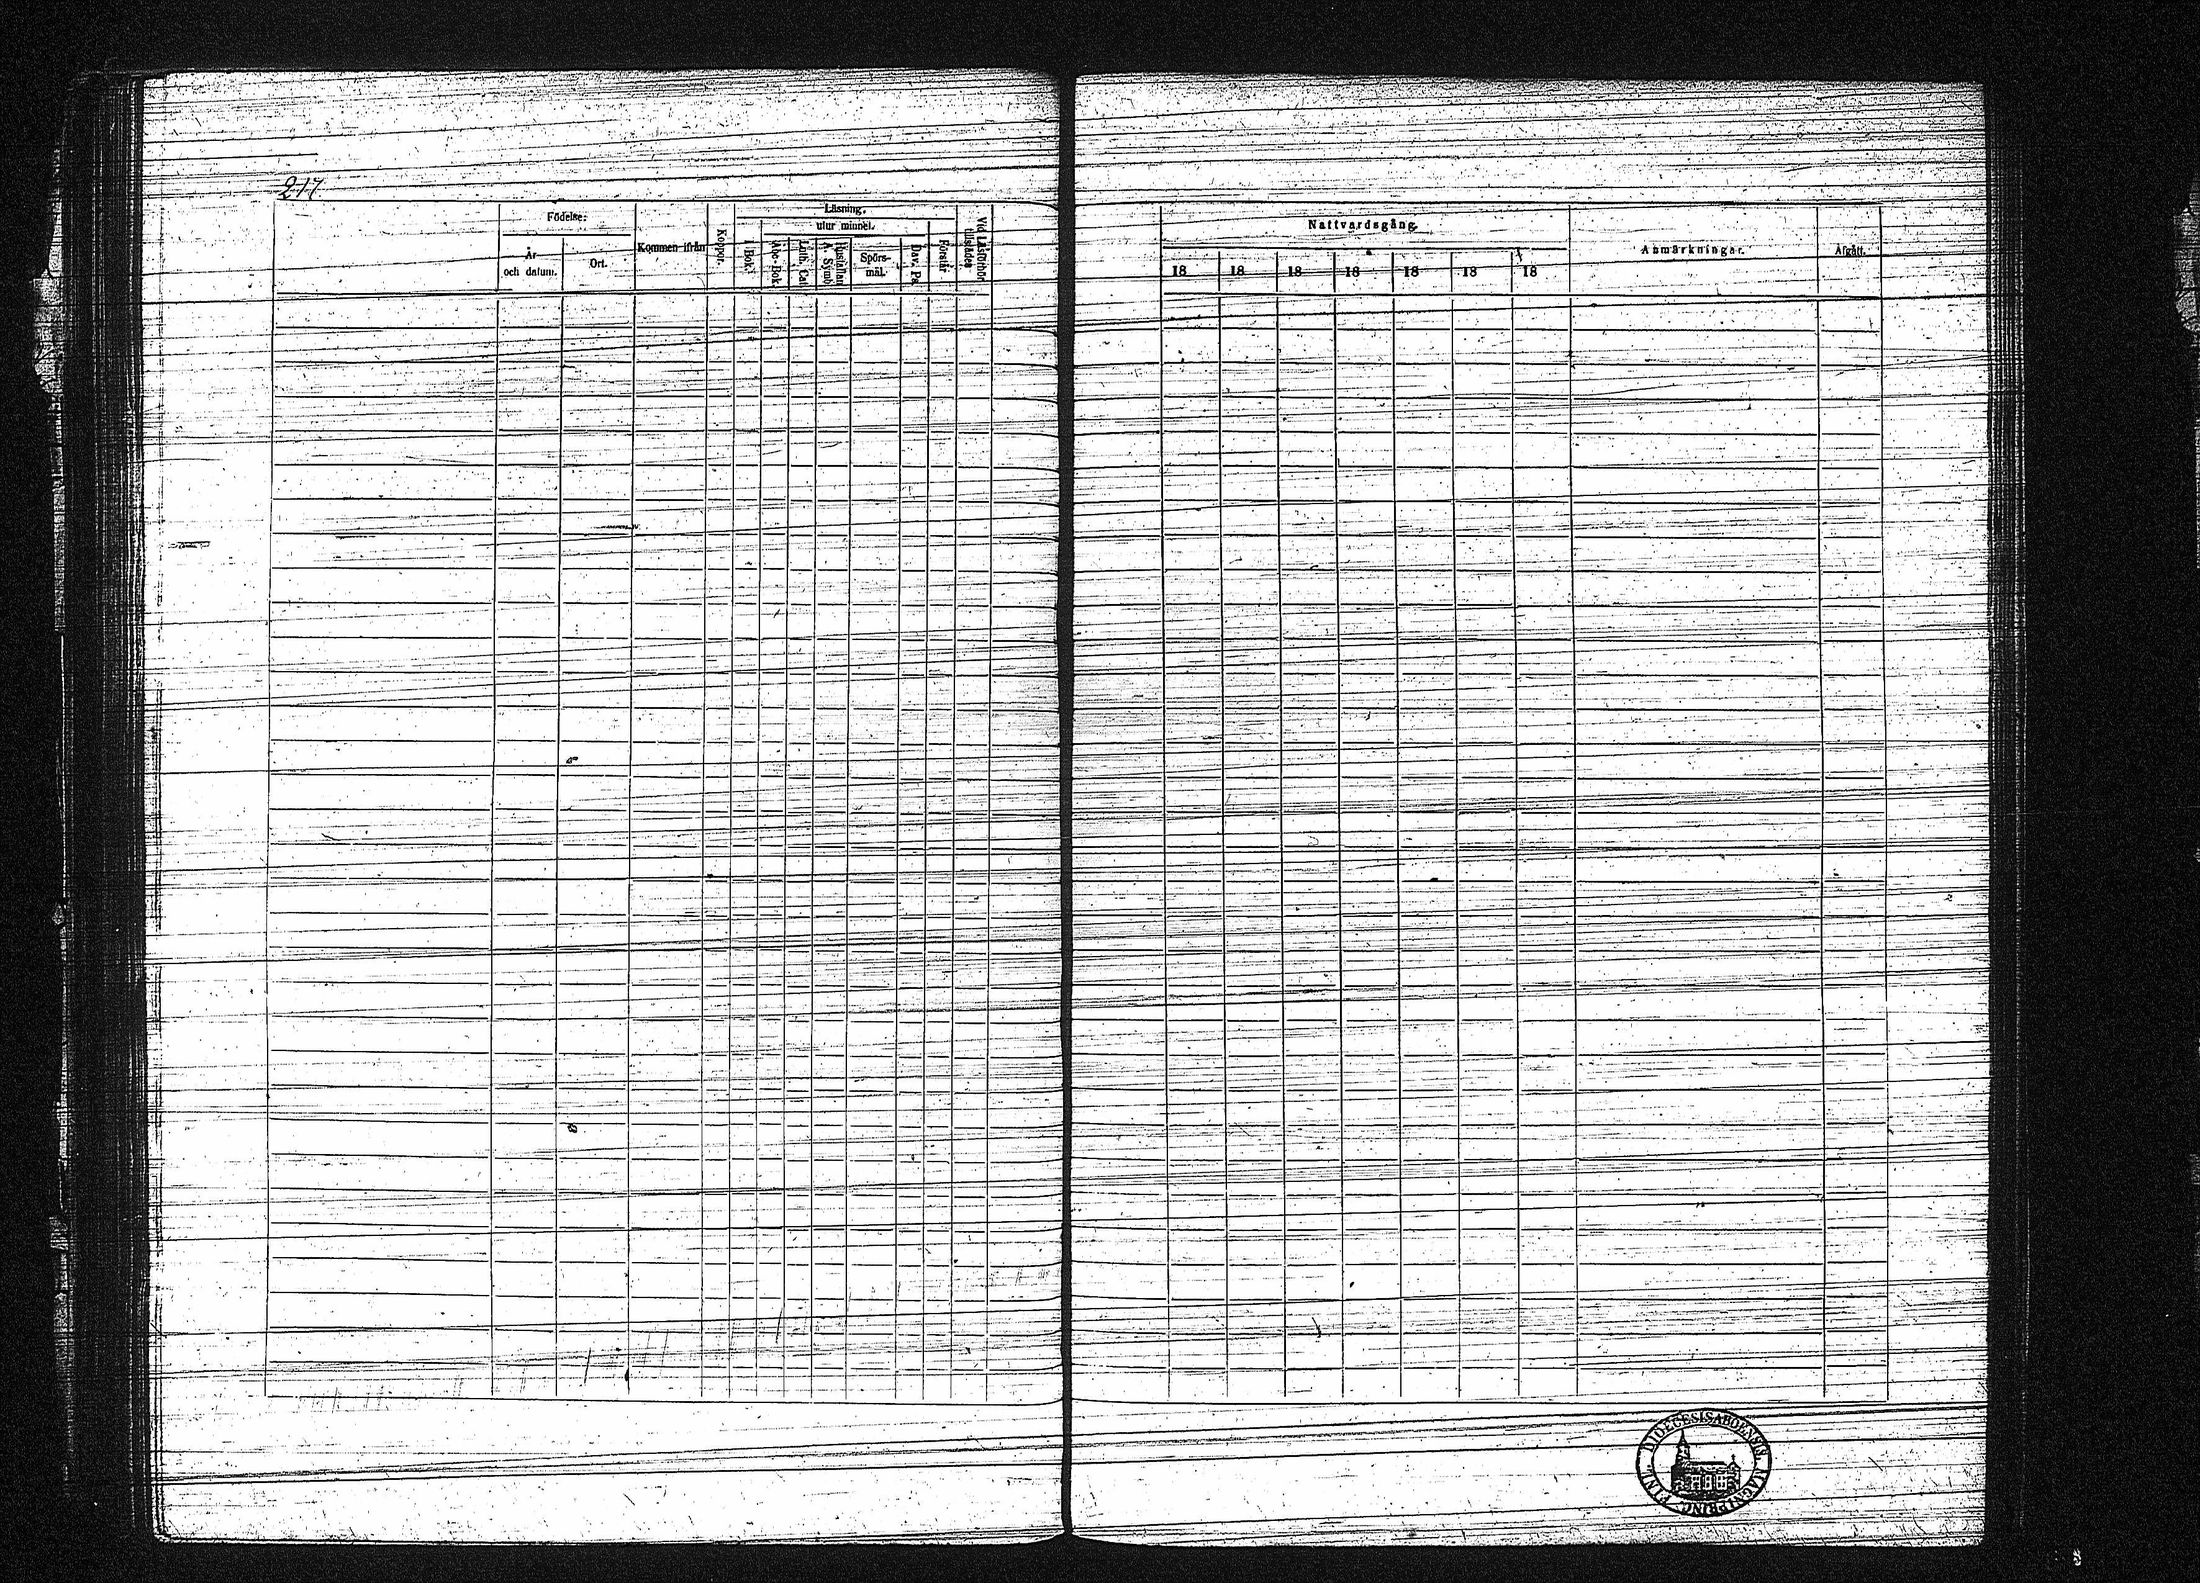 217
Födelse:
År
och datum.
Ort.
Kommen ifrån
Koppor.
Läsning.
utur minnet.
I Bok.
Abc-Bok.
Luth. Cat.
Hustaflan
A. Symb.
Spörs-
mål.
Dav. Ps.
Förstår
Vid Läsförhör
tillstädes
Nattvardsgång.
18 18 18 18 18 18 18
Anmärkningar.
Afgått.
DIOECESIS ABOENSIS MAGNI PRINC. FINL.